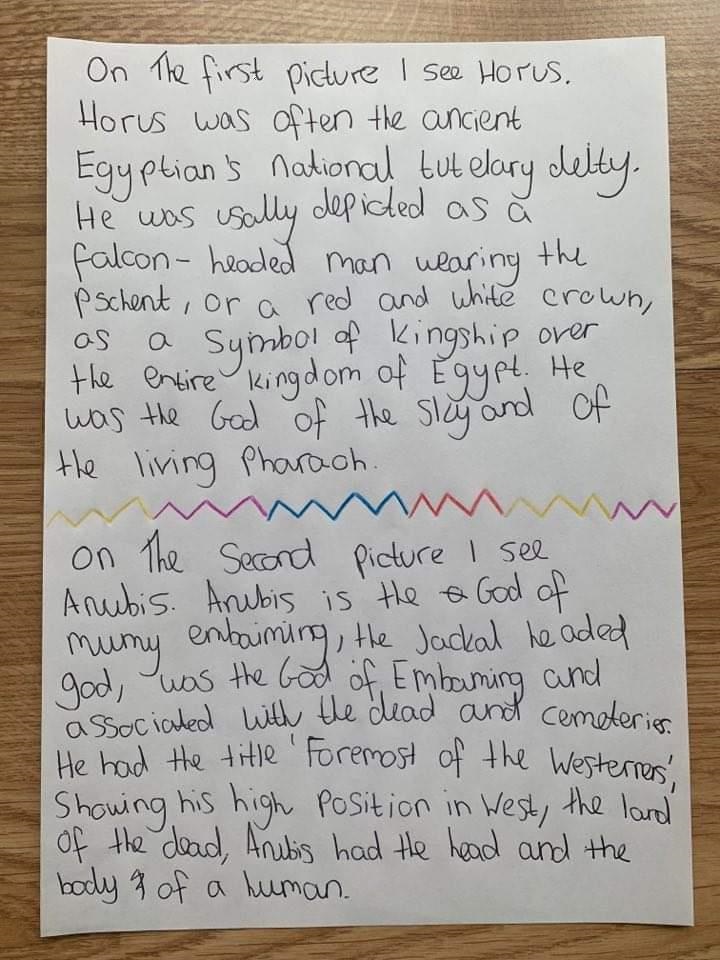 On The first picture I see Horus.
Horus was often the ancient
Egyptian's national tutelary deity.
He was usally depicted as a
falcon-headed man wearing the
Pschent, or a red and white crown,
as a Symbol of kingship over
the entire kingdom of Egypt. He
was the God of the Sky and of
the living Pharaoh.
On The Second picture I see
Anubis. Anubis is the God of
mumy embaiming, the Jackal headed
god, was the God of Embaming and
associated with the dead and cemeteries.
He had the title 'Foremost of the Westerners',
Showing his high Position in West, the land
of the dead, Anubis had the head and the
body of a human.